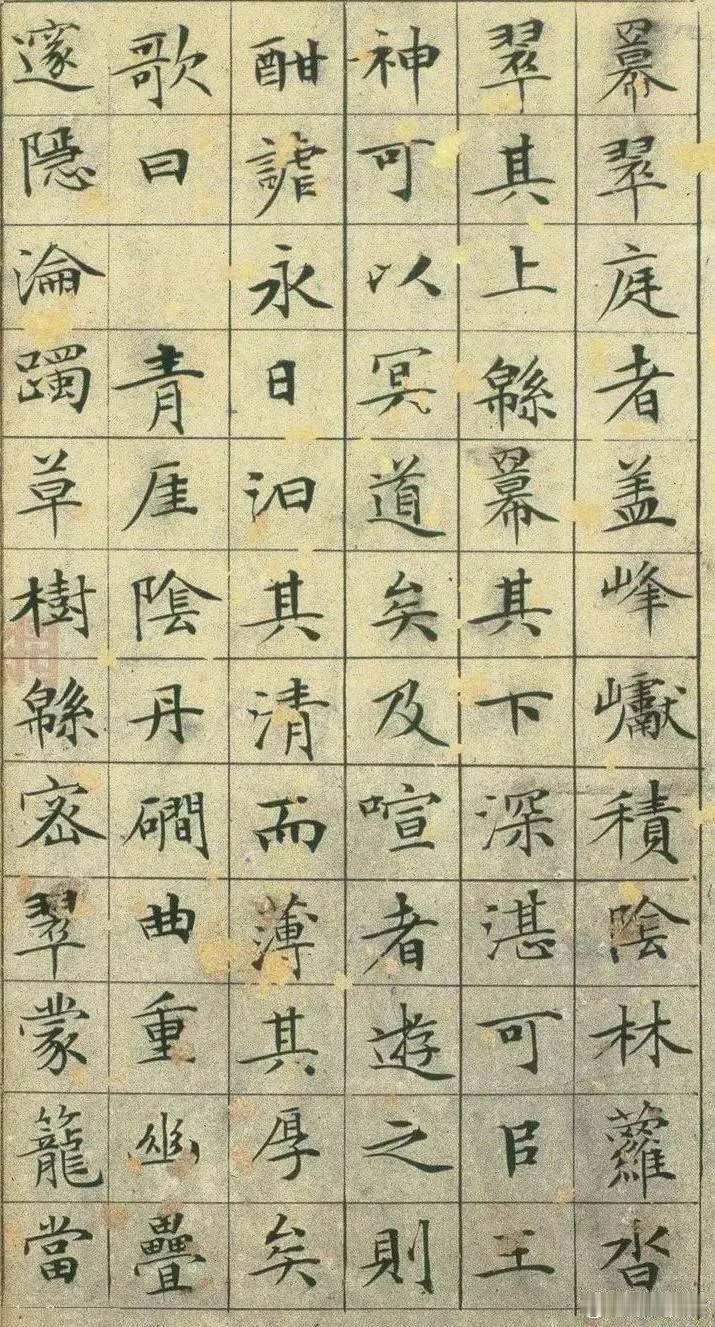 羃翠庭者盖峰巘積陰林蘿沓
翠其上緜羃其下深湛可㠯王
神可以冥道矣及喧者遊之則
酣謔永日汩其清而薄其厚矣
歌曰 青厓陰丹磵曲重幽疊
邃隱淪躅草樹緜密翠蒙籠當